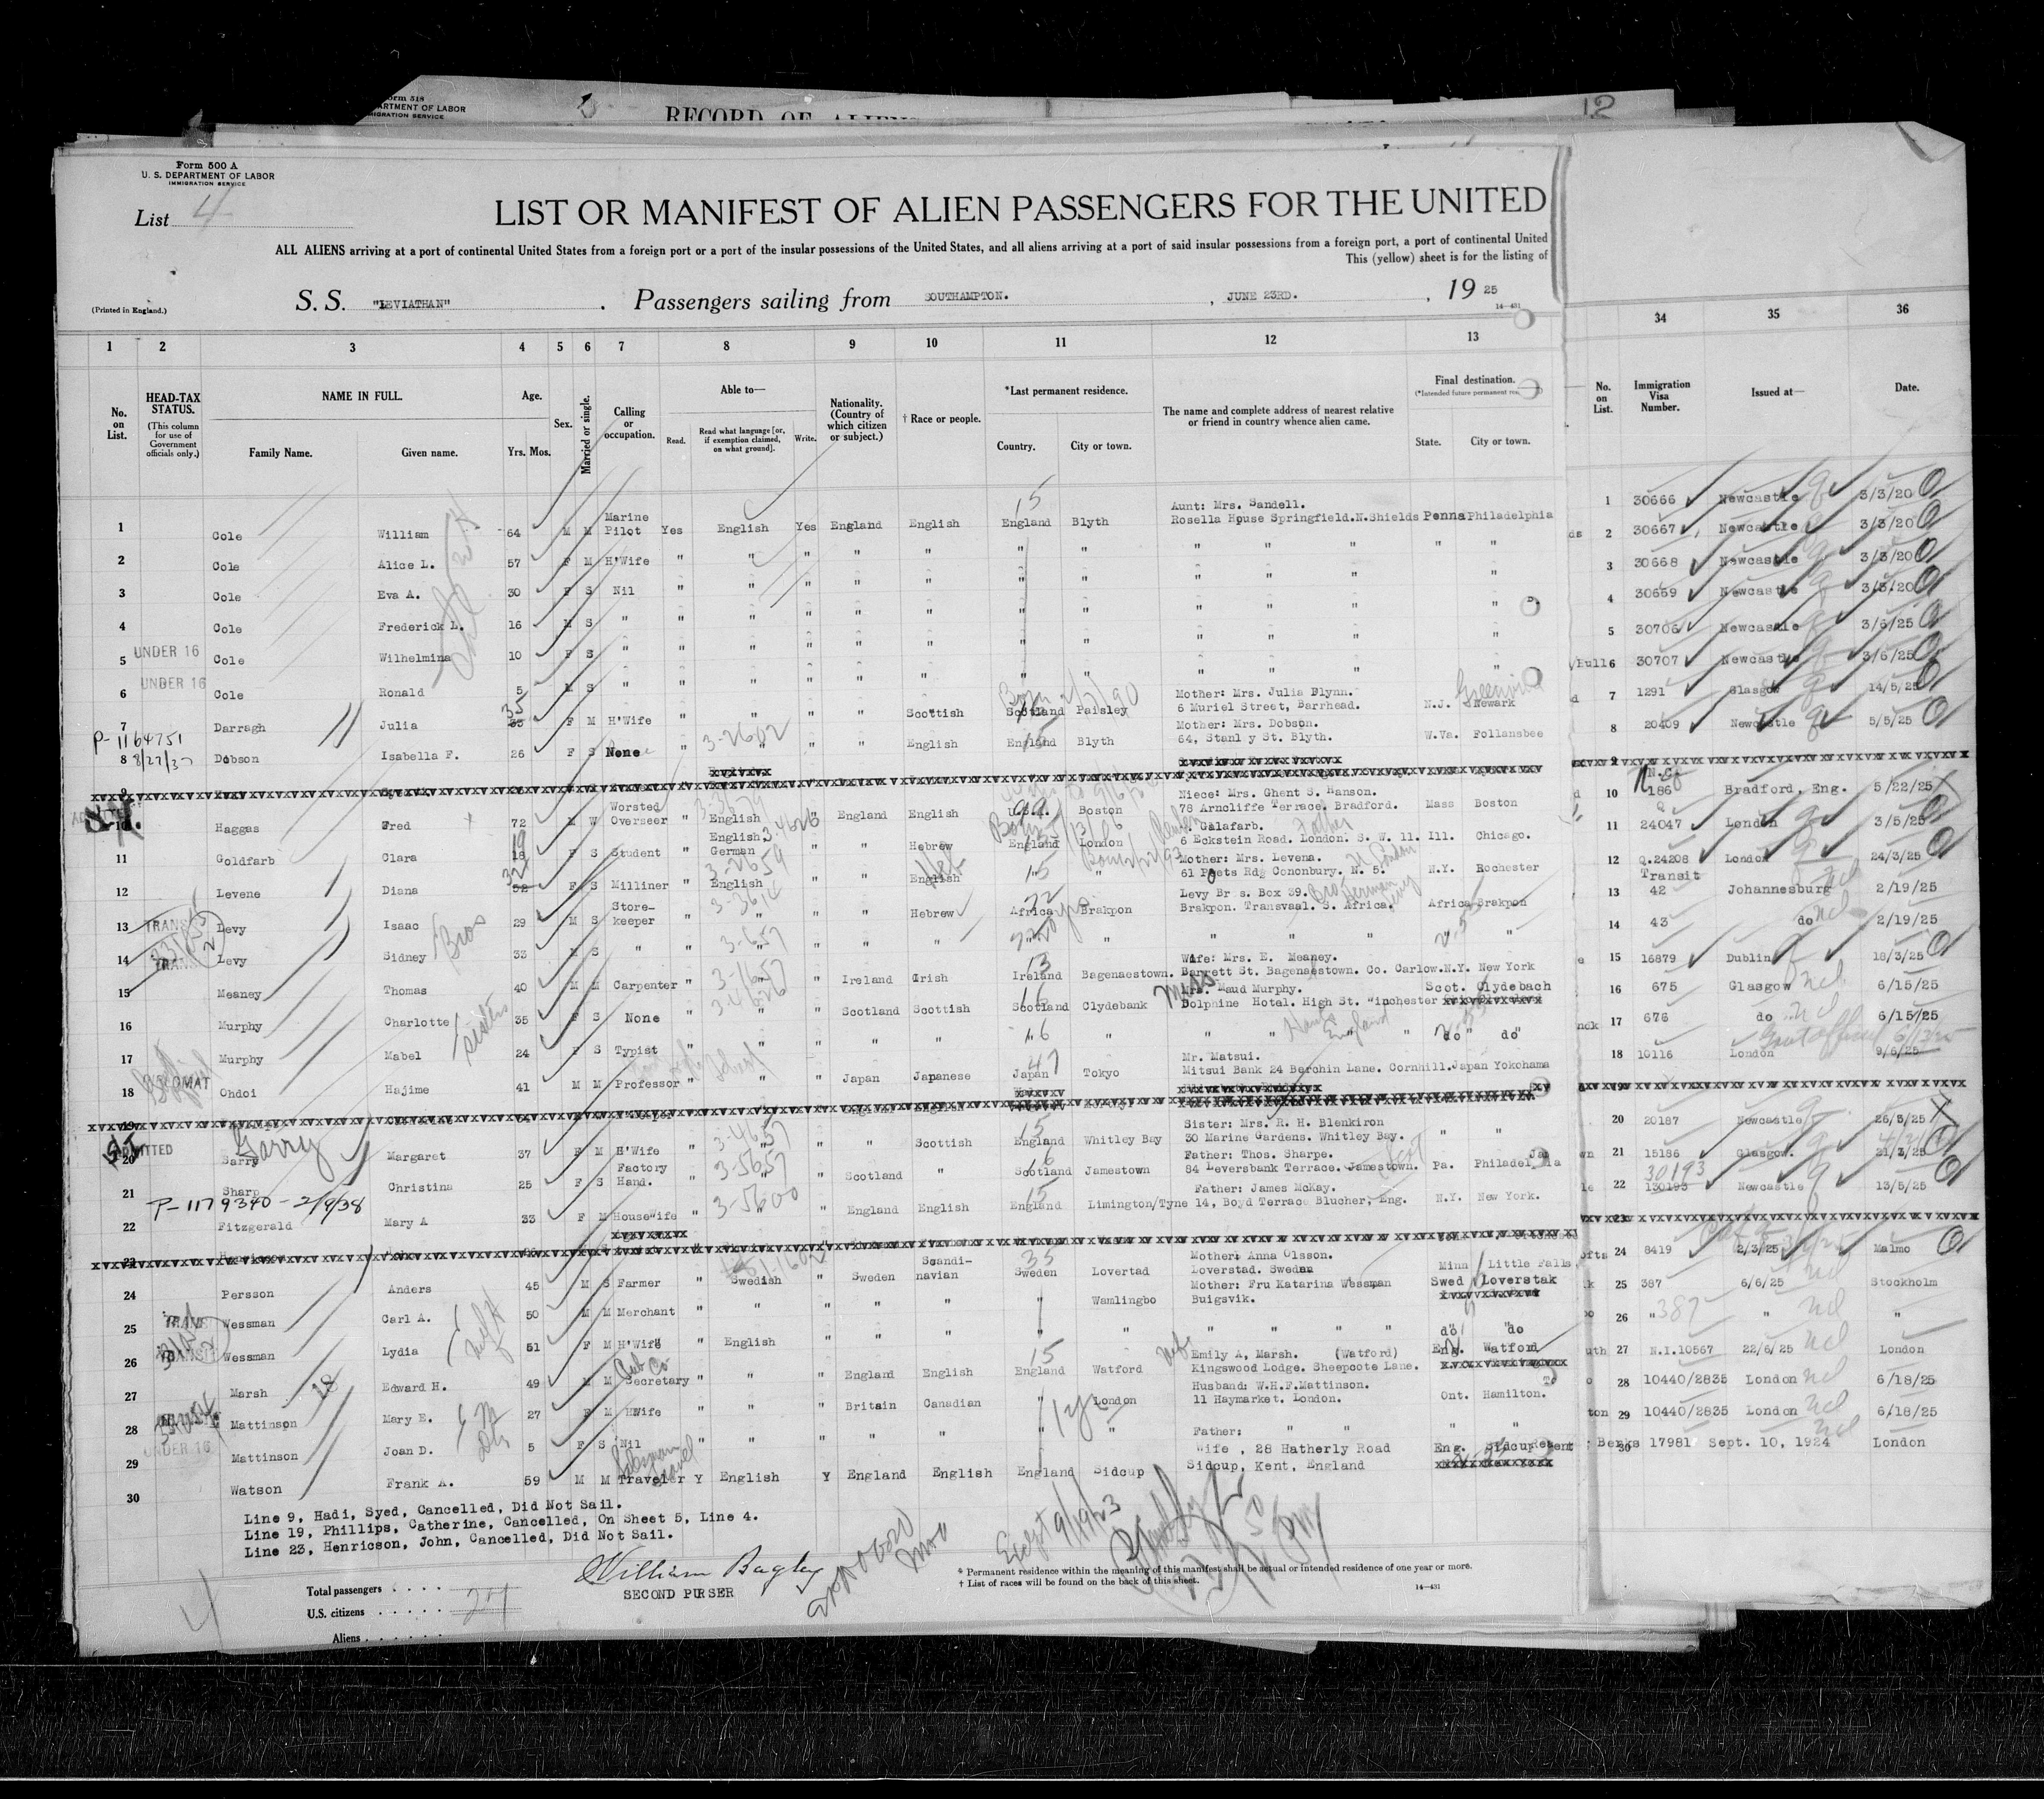 Form 518
DEPARTMENT OF LABOR
IMMIGRATION SERVICE
RECORD OF ALIENS
12
Form 500 A
U. S. DEPARTMENT OF LABOR
IMMIGRATION SERVICE
List 4
LIST OR MANIFEST OF ALIEN PASSENGERS FOR THE UNITED
ALL ALIENS arriving at a port of continental United States from a foreign port or a port of the insular possessions of the United States, and all aliens arriving at a port of said insular possessions from a foreign port, a port of continental United
This (yellow) sheet is for the listing of
(Printed in England.)
S. S. "LEVIATHAN" . Passengers sailing from SOUTHAMPTON. , JUNE 23RD. , 19 25
14—431
1 2 3 4 5 6 7 8 9 10 11 12 13 34 35 36
No. on List.
HEAD-TAX STATUS.
(This column for use of Government officials only.)
NAME IN FULL.
Family Name. Given name.
Age.
Yrs. Mos.
Sex.
Married or single.
Calling or occupation.
Able to—
Read. Read what language [or, if exemption claimed, on what ground]. Write.
Nationality. (Country of which citizen or subject.)
† Race or people.
*Last permanent residence.
Country. City or town.
The name and complete address of nearest relative or friend in country whence alien came.
Final destination.
(*Intended future permanent
State. City or town.
No. on List.
Immigration Visa Number.
Issued at—
Date.
15
Aunt: Mrs. Sandell.
1 Cole William 64 M M Marine Pilot Yes English Yes England English England Blyth Rosella House Springfield.N.Shields Penna Philadelphia 1 30666 Newcastle 3/3/20
2 Cole Alice L. 57 F M H'Wife " " " " " " " " " " " " 2 30667 Newcastle 3/3/20
3 Cole Eva A. 30 F S Nil " " " " " " " " " " " 3 30668 Newcastle 3/3/20
4 Cole Frederick L. 16 M S " " " " " " " " " " " 4 30669 Newcastle 3/3/20
5 UNDER 16 Cole Wilhelmina 10 F S " " " " " " " " " " " 5 30706 Newcastle 3/6/25
6 UNDER 16 Cole Ronald 5 M S " " " " " " " " " " " 6 30707 Newcastle 3/6/25
Mother: Mrs. Julia Flynn.
7 Darragh Julia 35 F M H'Wife " " " " Scottish Scotland Paisley 6 Muriel Street, Barrhead. N.J. Newark 7 1291 Glasgow 14/5/25
P-1164751
Mother: Mrs. Dobson.
8 8/27/37 Dobson Isabella F. 26 F S None " 3-2602 " " English England Blyth 64, Stanl y St. Blyth. W.Va. Follansbee 8 20409 Newcastle 5/5/25
9
Niece: Mrs. Ghent S. Hanson.
10 Haggas Fred 72 M W Worsted Overseer " English " England English U.S.A. Boston 78 Arncliffe Terrace. Bradford. Mass Boston 10 186 Bradford, Eng. 5/22/25
Galafarb. Father
11 Goldfarb Clara 19 18 F S Student " English German " " Hebrew England London 6 Eckstein Road. London. S. W. 11. Ill. Chicago. 11 24047 London 3/5/25
Mother: Mrs. Levena.
12 Levene Diana 32 F S Milliner " English " " English " " 61 Poets Rd. Cononbury. N. 5. N.Y. Rochester 12 Q.24208 London 24/3/25
Levy Br s. Box 39. Bro Herman Levy
13 TRANSIT Levy Isaac 29 M S Store-keeper " " " " Hebrew Africa Brakpon Brakpon. Transvaal. S. Africa. Africa Brakpon 13 Transit 42 Johannesburg 2/19/25
14 Levy Sidney Bros 33 M S " " " " " " " " " " " " " 14 43 do 2/19/25
Wife: Mrs. E. Meaney.
15 Meaney Thomas 40 M M Carpenter " " " Ireland Irish Ireland Bagenaestown. Barrett St. Bagenaestown. Co. Carlow. N.Y. New York 15 16879 Dublin 18/3/25
Miss Maud Murphy. Scot. Clydebach
16 Murphy Charlotte sisters 35 F S None " " " Scotland Scottish Scotland Clydebank Dolphine Hotel. High St. "inchester 16 675 Glasgow 6/15/25
17 Murphy Mabel 24 F S Typist " " " " " " " " " " " do do" 17 676 do 6/15/25
Hants England
Mr. Matsui.
18 DIPLOMAT Ohdoi Hajime 41 M M Professor " " " Japan Japanese Japan Tokyo Mitsui Bank 24 Berchin Lane. Cornhill. Japan Yokohama 18 10116 London 9/6/25
19
Sister: Mrs. R. H. Blenkiron
20 ADMITTED Barry Garry Margaret 37 F M H'Wife " " " " Scottish England Whitley Bay 30 Marine Gardens. Whitley Bay. " " 20 20187 Newcastle 26/5/25
Father: Thos. Sharpe.
21 Sharp Christina 25 F S Factory Hand. " " " Scotland " Scotland Jamestown 84 Leversbank Terrace. Jamestown. Pa. Philadelphia 21 15186 Glasgow. 21/3/25
P-1179340-2/9/38
Father: James McKay.
22 Fitzgerald Mary A 33 F M Housewife " 3-5600 " England English England Limington/Tyne 14, Boyd Terrace Blucher, Eng. N.Y. New York. 22 130193 30193 Newcastle 13/5/25
23
Mother: Anna Olsson.
24 Persson Anders 45 M S Farmer " Swedish " Sweden Scandi-navian Sweden Lovertad Loverstad. Sweden Minn Little Falls. 24 8419 2/3/25 Malmo
Mother: Fru Katarina Wessman Swed Loverstak
25 Wessman Carl A. 50 M M Merchant " " " " " " Wamlingbo Buigsvik. 25 387 6/6/25 Stockholm
26 TRANSIT Wessman Lydia 51 F M H'Wife " English " " " " " " " " " do do 26 " 387 " "
Emily A, Marsh. (Watford) Eng. Watford
27 Marsh Edward H. 49 M M Secretary " " " England English England Watford Kingswood Lodge. Sheepcote Lane. 27 N.I.10567 22/6/25 London
Husband: W.H.F.Mattinson.
28 Mattinson Mary E. 27 F M HWife " " " Britain Canadian " London 11 Haymarket. London. Ont. Hamilton. 28 10440/2835 London 6/18/25
Father: " "
29 UNDER 16 Mattinson Joan D. 5 F S Nil " " " " " " " " " 29 10440/2835 London 6/18/25
Wife , 28 Hatherly Road Eng. Sidcup
30 Watson Frank A. 59 M M Traveler Y English Y England English England Sidcup Sidcup, Kent, England 30 17981 Sept. 10, 1924 London
Line 9, Hadi, Syed, Cancelled, Did Not Sail.
Line 19, Phillips, Catherine, Cancelled, On Sheet 5, Line 4.
Line 23, Henricson, John, Cancelled, Did Not Sail.
William Bagley
SECOND PURSER
Total passengers
U.S. citizens
Aliens
27
* Permanent residence within the meaning of this manifest shall be actual or intended residence of one year or more.
† List of races will be found on the back of this sheet.
14—431